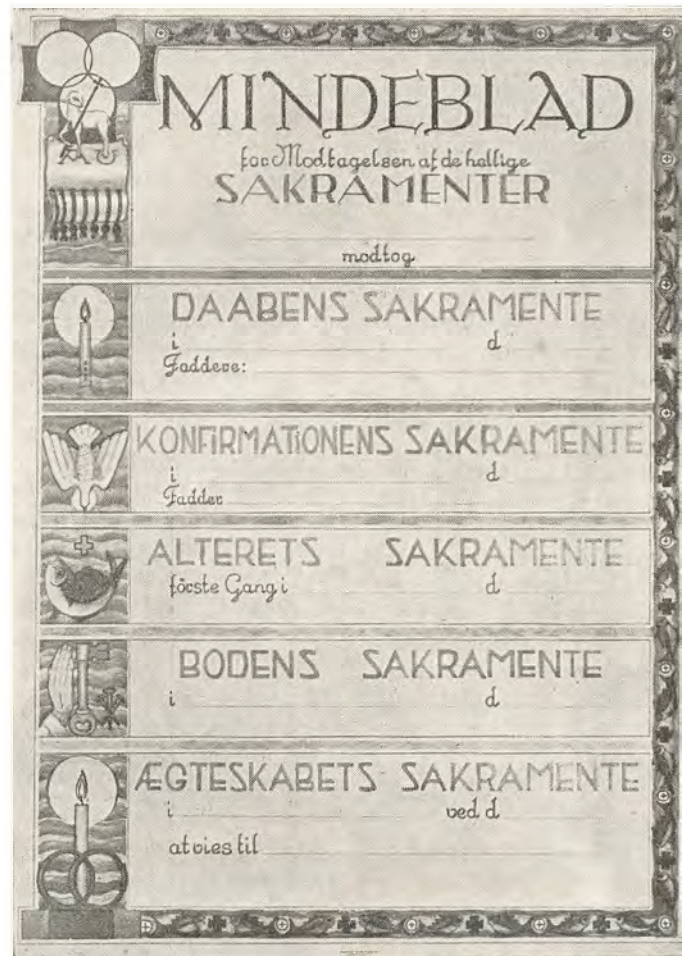 MINDEBLAD
for Modtagelsen af de hellige
SAKRAMENTER
modtog
DAABENS SAKRAMENTE
i d
Faddere:
KONFIRMATIONENS SAKRAMENTE
i d
Fadder
ALTERETS SAKRAMENTE
förste Gang i d
BODENS SAKRAMENTE
i d
ÆGTESKABETS SAKRAMENTE
i ved d
at vies til